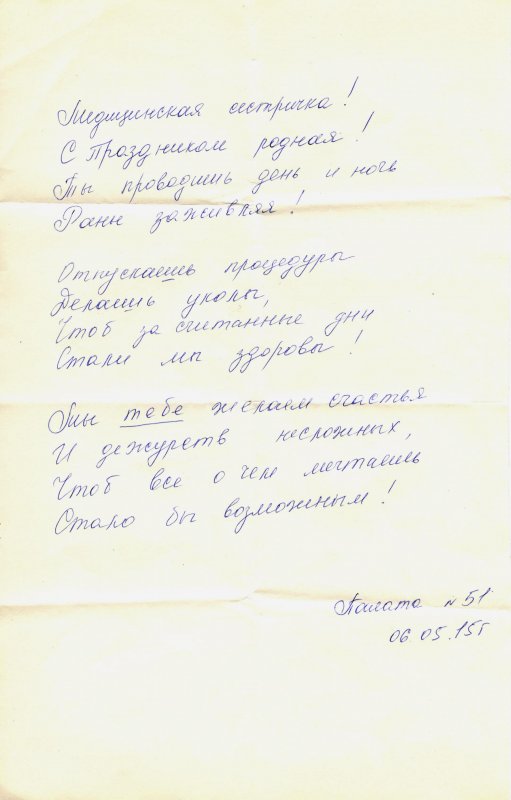 Медицинская сестричка!
С Праздником родная!
Ты проводишь день и ночь
Раны заживляя!
Отпускаешь процедуры
Делаешь уколы,
Чтоб за считанные дни
Стали мы здоровы!
Мы тебе желаем счастья
И дежурств несложных,
Чтоб все о чем мечтаешь
Стало бы возможным!
Палата N 51
06.05.15г